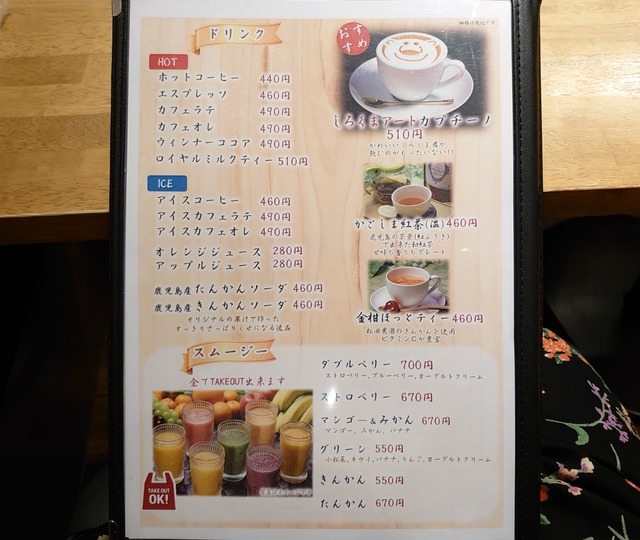 価格は税込です
ドリンク
おすすめ
HOT
ホットコーヒー 440円
エスプレッソ 460円
カフェラテ 490円
カフェオレ 490円
ウィンナーココア 490円
ロイヤルミルクティー 510円
ICE
アイスコーヒー 460円
アイスカフェラテ 490円
アイスカフェオレ 490円
オレンジジュース 280円
アップルジュース 280円
鹿児島産 たんかんソーダ 460円
鹿児島産 きんかんソーダ 460円
オリジナルの果汁で作った
すっきりさっぱりくせになる逸品
しろくまアートカプチーノ
510円
かわいいしろくま君が
飲むのがもったいない!!
かごしま紅茶(温) 460円
鹿児島の茶葉(紅ふうき)
で出来た和紅茶
甘味も香りもグレート
金柑ほっとティー 460円
松田農園のきんかんを使用
ビタミンCが豊富
スムージー
全てTAKEOUT出来ます
TAKE OUT
OK!
ダブルベリー 700円
ストロベリー,ブルーベリー,ヨーグルトクリーム
ストロベリー 670円
マンゴー&みかん 670円
マンゴー、みかん、バナナ
グリーン 550円
小松菜,キウイ,バナナ,りんご,ヨーグルトクリーム
きんかん 550円
たんかん 670円
写真はイメージです